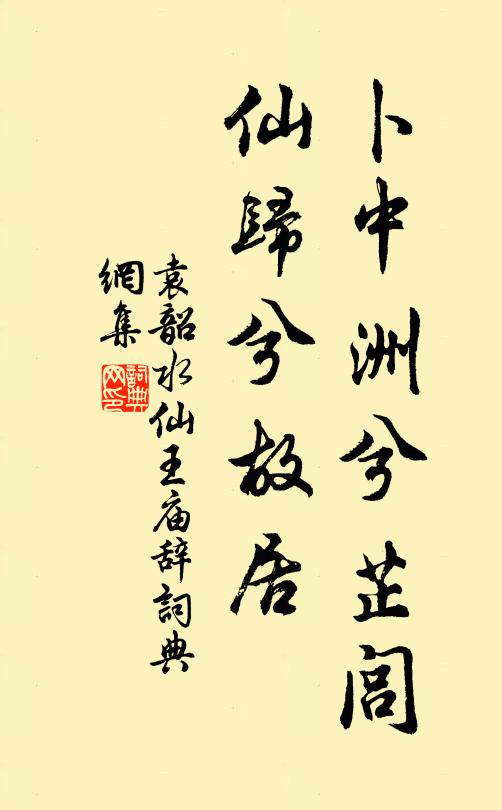 卜中洲兮芷閭
仙歸兮故居
袁韶水仙王庙辞詞典
網集
詞典
网印